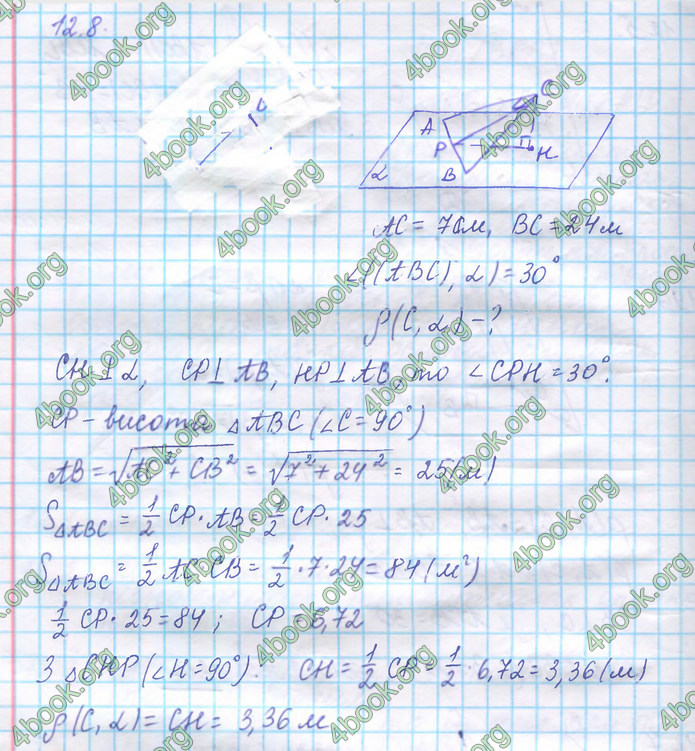 12.8.
C
A
P
П
H
B
α
AC = 7см, BC = 24м
∠((ABC), α) = 30°
ρ(C, α) - ?
CH ⊥ α, CP ⊥ AB, HP ⊥ AB, то ∠CPH = 30°.
CP - висота △ABC (∠C = 90°)
AB = √AC² + CB² = √7² + 24² = 25(м)
S△ABC = 1/2 CP · AB = 1/2 CP · 25
S△ABC = 1/2 AC · CB = 1/2 · 7 · 24 = 84 (м²)
1/2 CP · 25 = 84; CP = 6,72
З △CHP (∠H = 90°): CH = 1/2 CP = 1/2 · 6,72 = 3,36 (м)
ρ(C, α) = CH = 3,36 м
4book.org